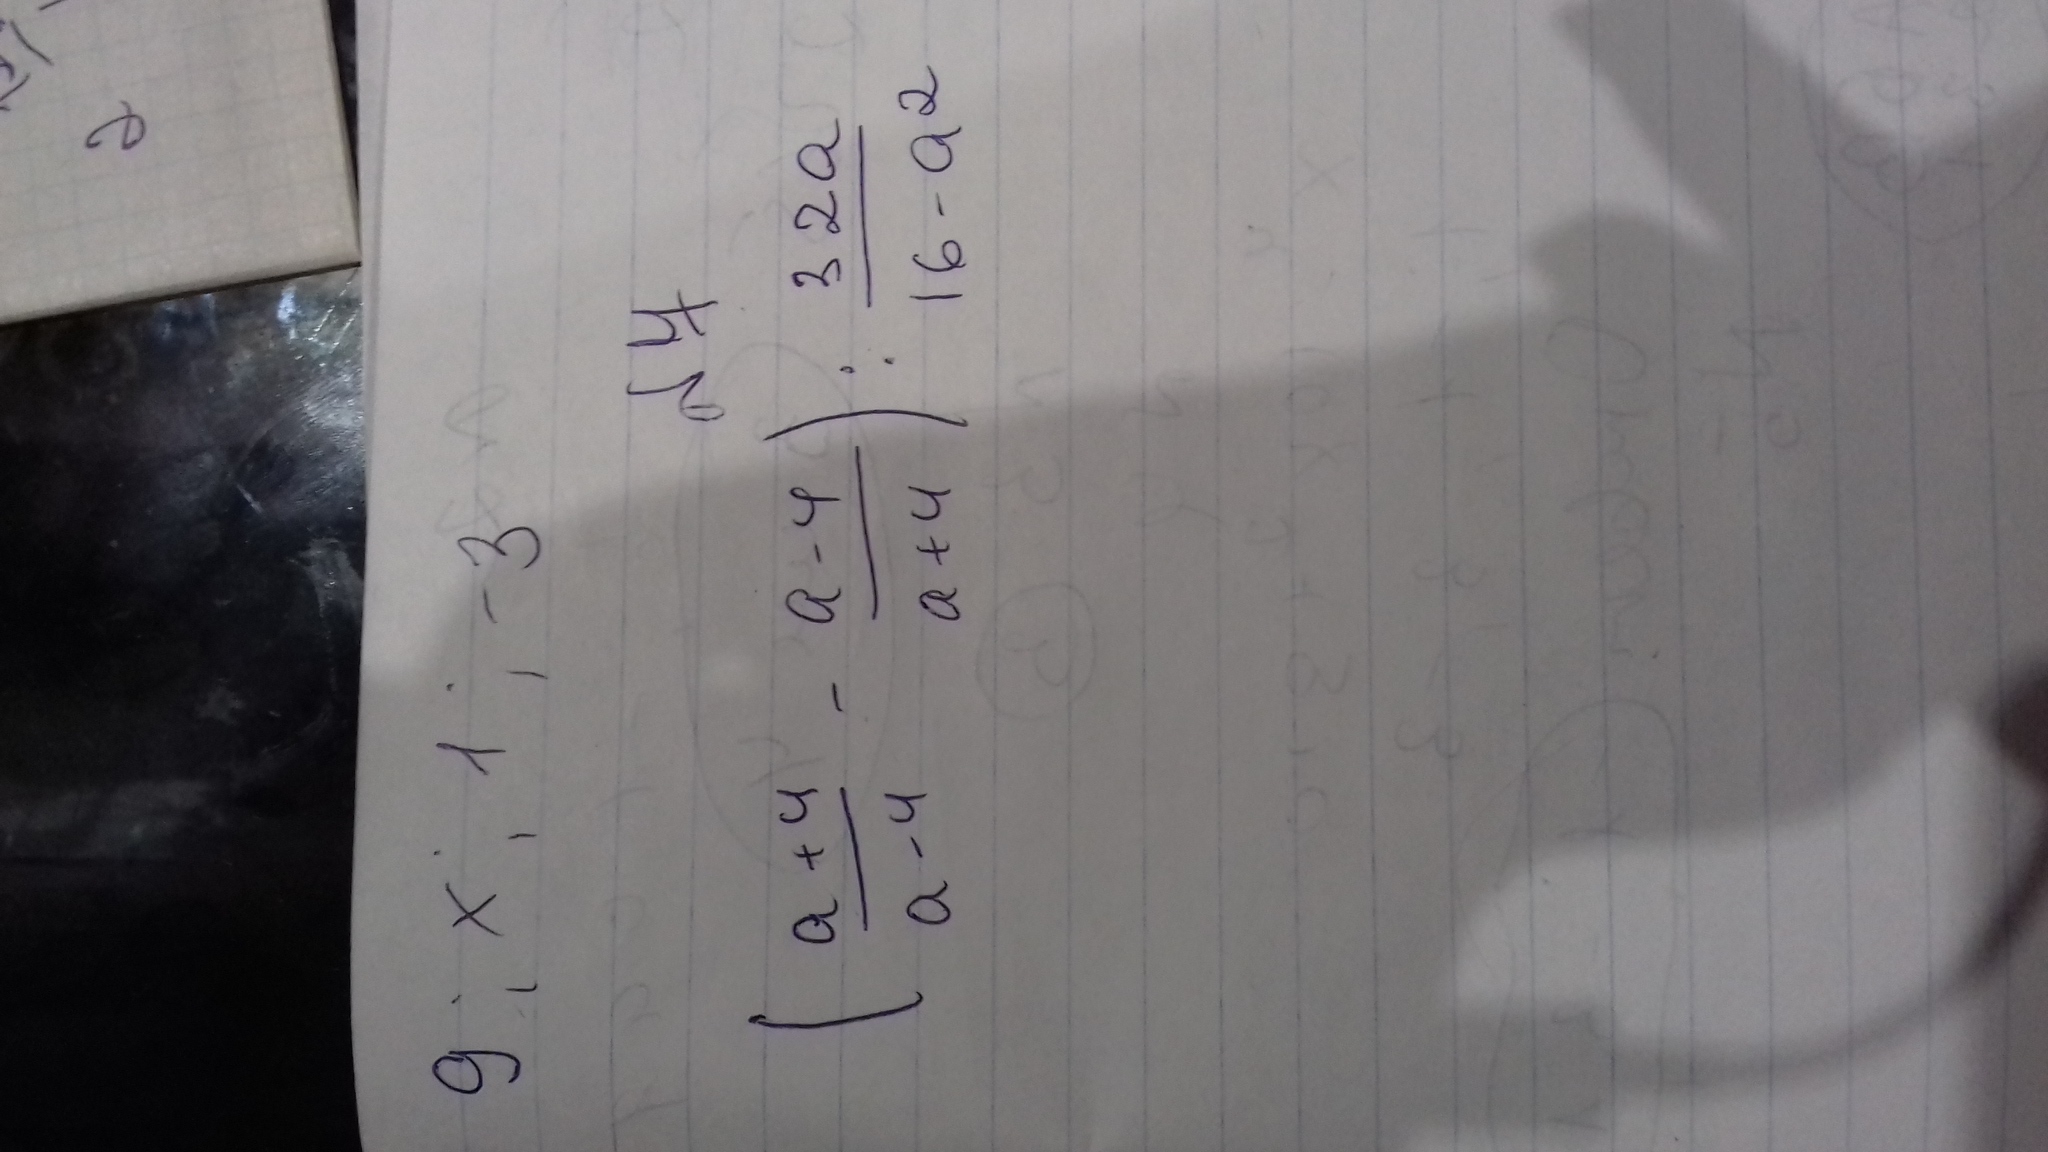 2
9 ; x ; 1 ; -3
№7
( (a+4)/(a-4) - (a-4)/(a+4) ) : 32a/(16-a²)